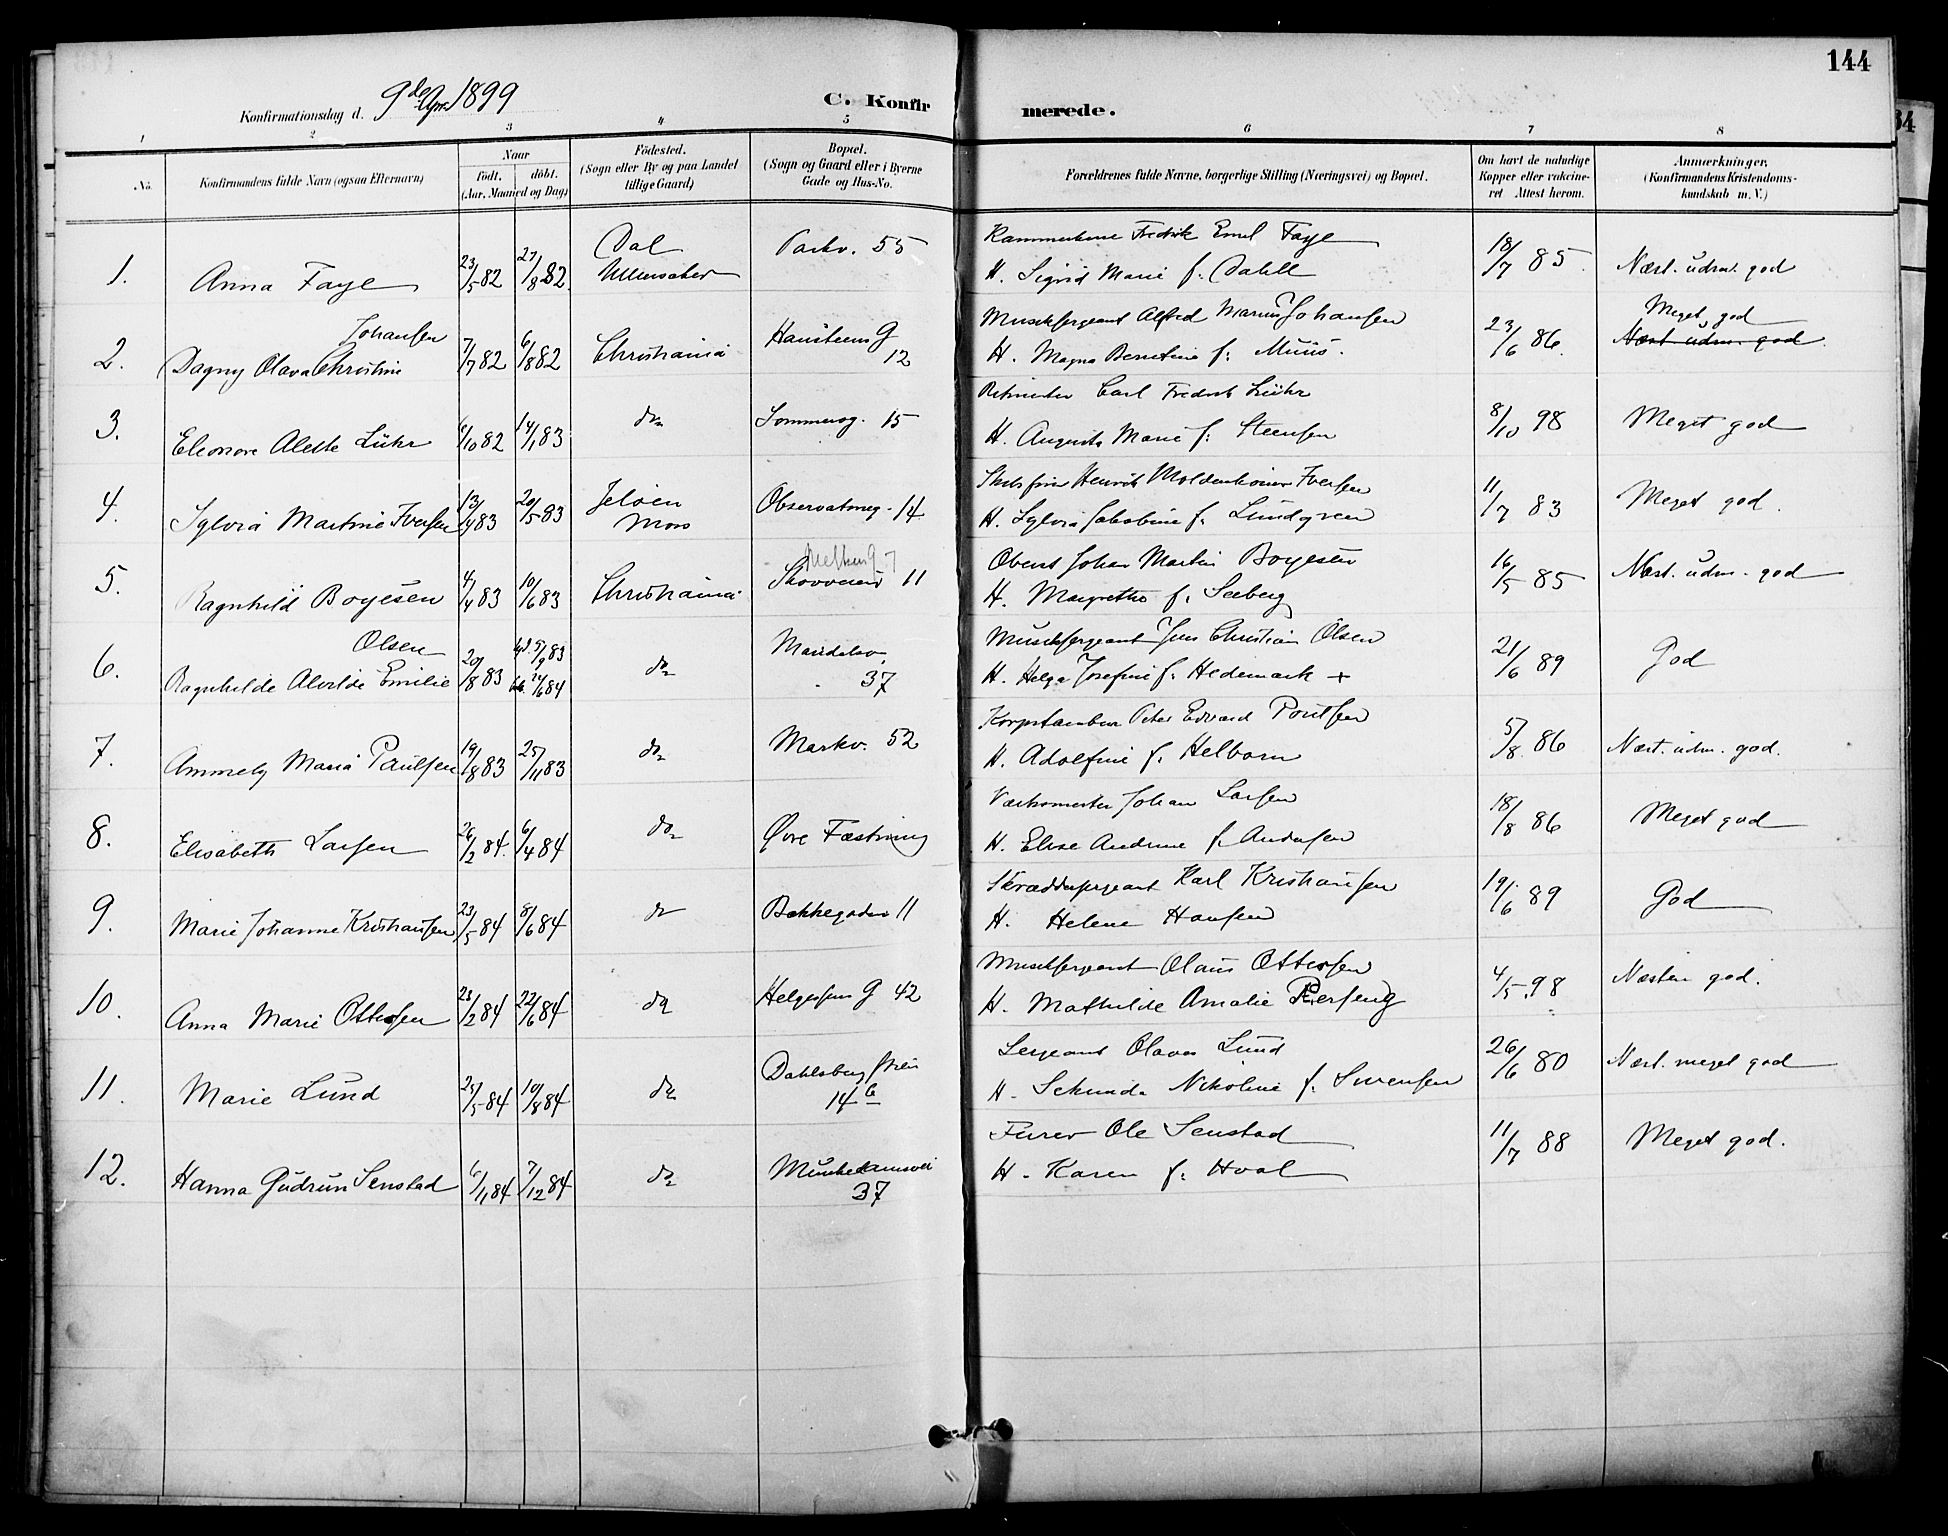 144
Konfirmationsdag d. 9de Apr. 1899
C. Konfirmerede.
1 2 3 4 5 6 7 8
No. Konfirmandens fulde Navn (ogsaa Efternavn) Naar födt. döbt. (Aar, Maaned og Dag) Födested. (Sogn eller By og paa Landet tillige Gaard) Bopæl. (Sogn og Gaard eller i Byerne Gade og Hus-No. Forældrenes fulde Navne, borgerlige Stilling (Næringsvei) og Bopæl. Om havt de naturlige Kopper eller vakcineret Attest herom. Anmærkninger. (Konfirmandens Kristendomskundskab m. V.)
1. Anna Faye 23/5 82 27/8 82 Dal Ullensaker Parkv. 55
Kammerherre Fredrik Emil Faye
H. Sigrid Marie f. Dahll 18/7 85. Næst. udm. god
2. Dagny Olava Christine Johansen 7/7 82 6/8 82 Christiania Hansteens G 12
Musiksergeant Alfred Marius Johansen
H. Magna Berntine f. Muus. 23/6 86. Meget god
Næst udm. god.
3. Eleonore Alette Lühr 6/10 82 14/1 83 do Sommerog. 15
Carl Fredrik Lühr
H. Augusta Marie f. Steensen 8/10 98 Meget god
4. Sylvia Martine Iversen 13/4 83 20/5 83 Jeløen Moss Observatorieg. 14
Henrik Moldenhauer Iversen
H. Sylvia Jakobine f. Lundgreen 11/7 83 Meget god.
5. Ragnhild Boyesen 4/4 83 10/6 83 Christiania Skovveien 11
Oberst Johan Martin Boyesen
H. Margrethe f. Seeberg 16/5 85 Næst. udm. god
6. Ragnhilde Alvilde Emilie Olsen 20/8 83 5/9 83 6/84 do Maridalsv. 37
Musiksergeant Jens Christian Olsen
H. Helga Josefine f. Hedemark + 21/6 89 God
7. Ammely Maria Paulsen 19/8 83 25/11 83 do Markv. 52
Korpstambur Peter Edvard Poulsen
H. Adolfine f. Helborn 5/8 86 Næst. udm. god.
8. Elisabeth Larsen 26/2 84. 6/4 84 do Øvre Fæstning
Værksmester Johan Larsen
H. Elise Andrine f. Andersen 18/8 86 Meget god
9. Marie Johanne Kristiansen 23/5 84 8/6 84 do Bakkegaden 11
Skræddersergeant Karl Kristiansen
H. Helene Hansen 19/6 89 God
10. Anna Marie Ottersen 23/2 84 22/6 84 do Helgesens G 42
Musiksergeant Olaus Ottersen
H. Mathilde Amalie 4/5 98 Næsten god.
11. Marie Lund 25/5 84 10/8 84 do Dahlsbergstien 14 b
Sergeant Olavus Lund
H. Sekunda Nikoline f. Sørensen 26/6 80 Næst. meget god
12. Hanna Gudrun Senstad 6/11 84 7/12 84 do Munkedamsvei 37
Furer Ole Senstad
H. Karen f. Hval 11/7 88 Meget god.